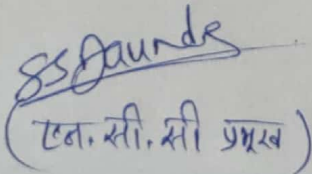 SSDaunde
(एन. सी. सी प्रमुख)